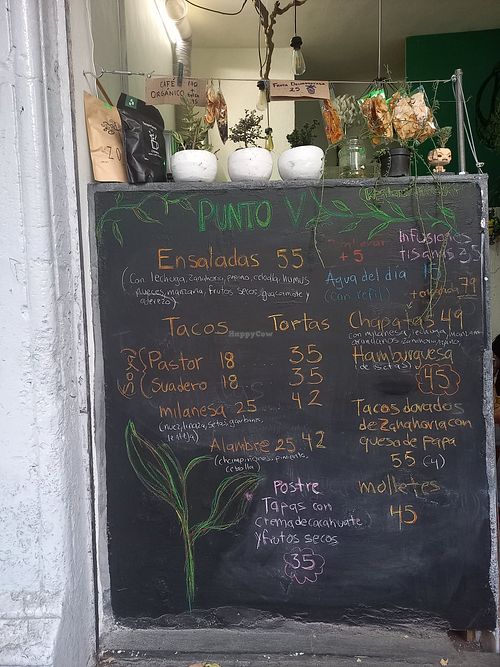 CAFÉ 110
ORGANICO
Fruta Deshidratada
25
PUNTO V
Ensaladas 55
(Con lechuga, Zanahoria, pepino, cebolla, humus
nueces, manzana, frutos secos, guacamole y
aderezo)
Para llevar
+5
Infusiones
tisanas 35
Agua del día
(con refil)
79
Tacos
Tortas
SOYA
Pastor 18 35
Suadero 18 35
milanesa 25 42
Alambre 25 42
(champiñones, pimiento,
cebolla)
Chapatas 49
con milanesa, lechuga, manzana
Hamburguesa
(de setas)
45
Tacos dorados
de Zanahoria con
queso de papa
55 (4)
Postre
Tapas con
Crema de cacahuate
y frutos secos
35
molletes
45
HappyCow